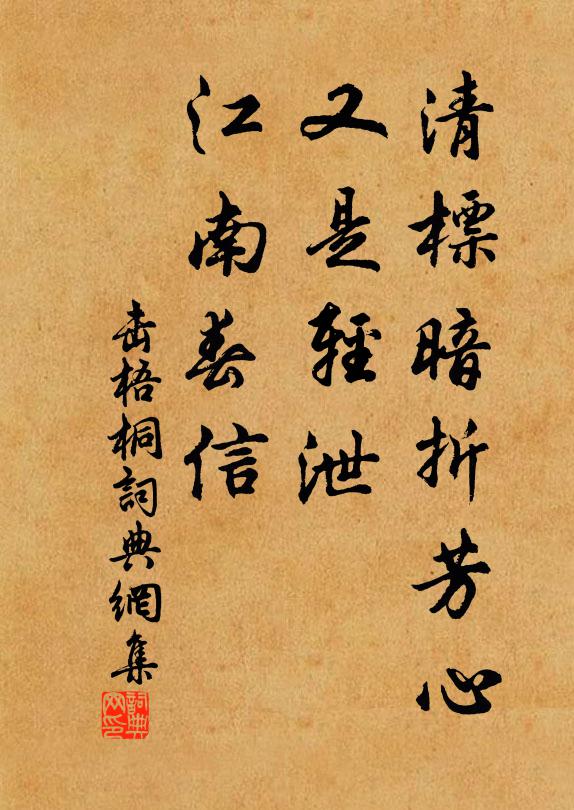 清標暗折芳心
又是輕泄
江南春信
击梧桐詞典網集
詞典
网印